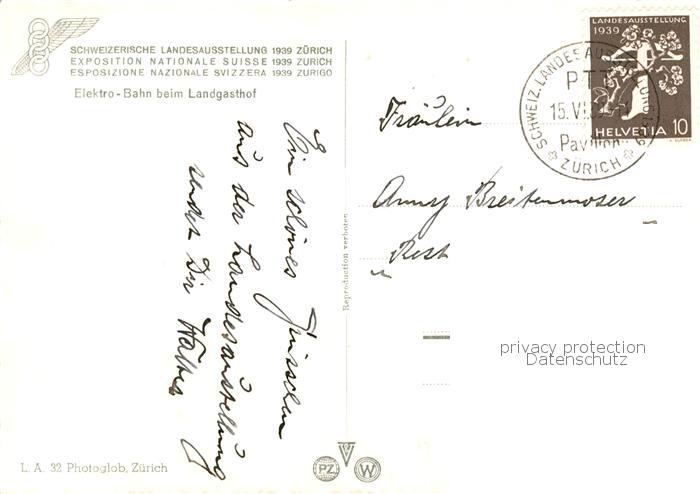 SCHWEIZERISCHE LANDESAUSSTELLUNG 1939 ZÜRICH
EXPOSITION NATIONALE SUISSE 1939 ZURICH
ESPOSIZIONE NAZIONALE SVIZZERA 1939 ZURIGO
Elektro-Bahn beim Landgasthof
Ein schönes Grüsschen
aus der Landesausstellung
sendet Dir Walter
L. A. 32 Photoglob, Zürich
Reproduction verboten
PZ
W
LANDESAUSSTELLUNG
1939
HELVETIA 10
SCHWEIZ. LANDESAUSSTELLUNG 1939
PTT
15.VI.
Pavillon
ZÜRICH
Fräulein
Anny Breitenmoser
Rest
privacy protection
Datenschutz